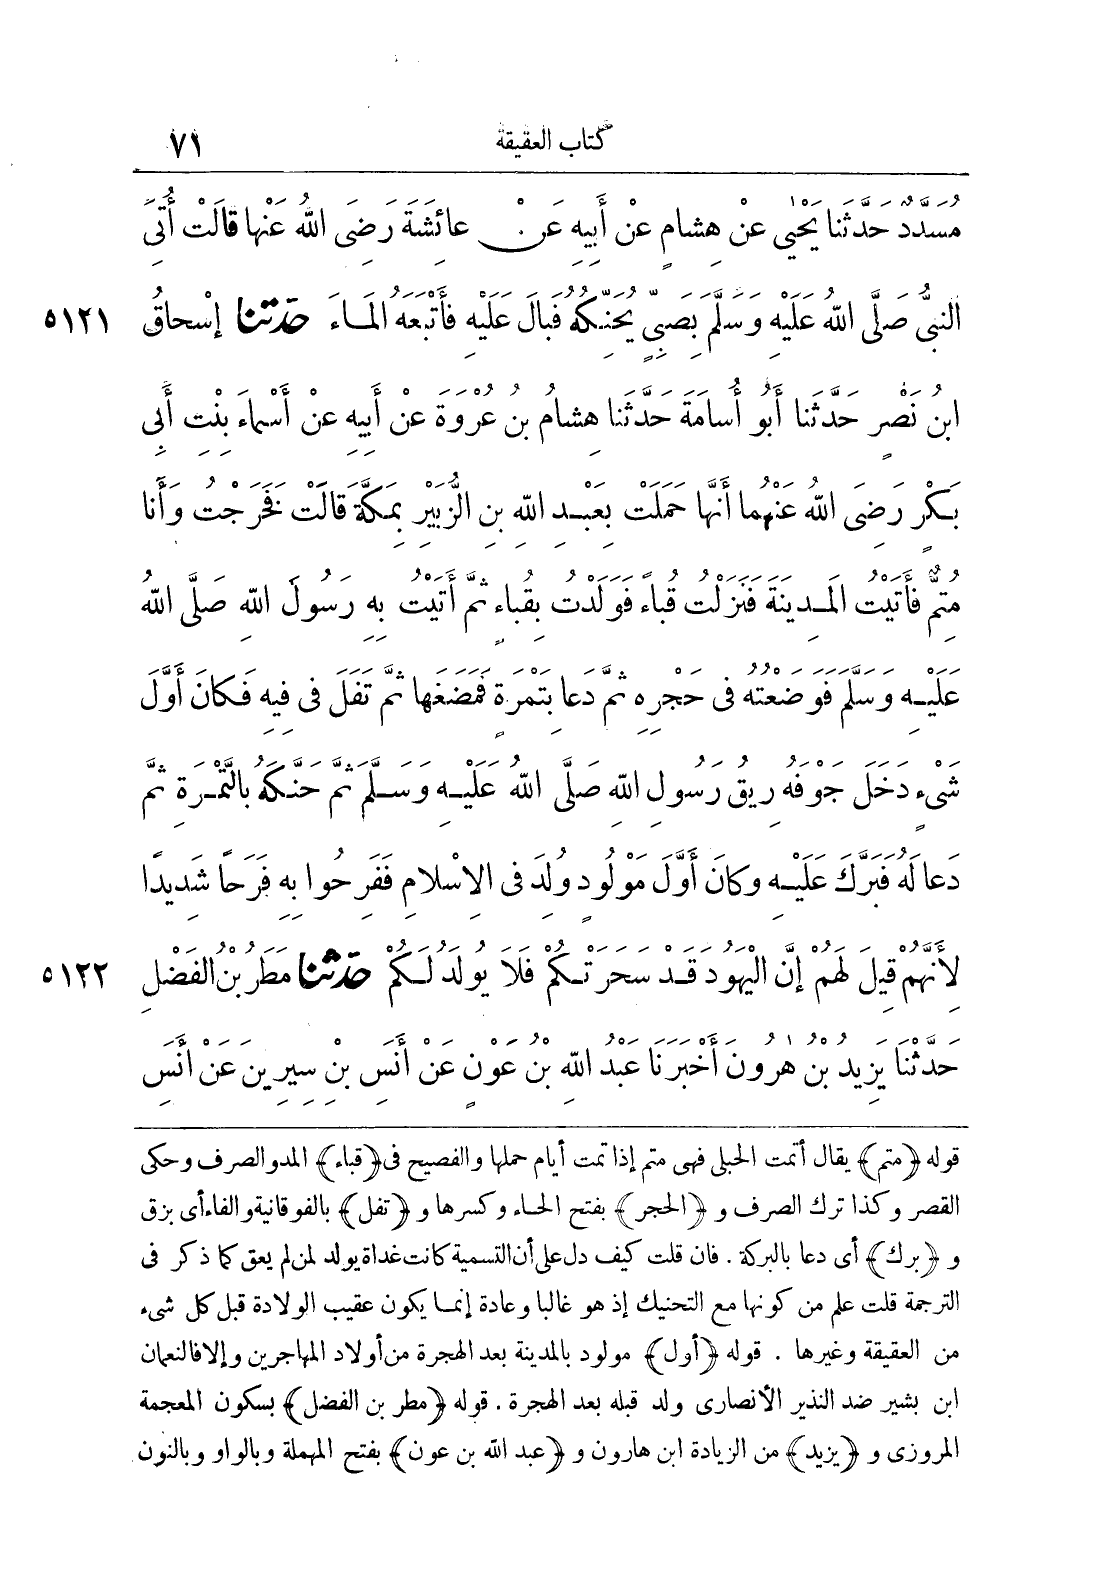 كتاب العقيقة ٧١
مُسَدَّدٌ حَدَّثَنَا يَحْيٰى عَنْ هِشَامٍ عَنْ أَبِيهِ عَنْ عَائِشَةَ رَضِىَ اللهُ عَنْهَا قَالَتْ أُتِىَ
النبىُّ صَلَّى اللهُ عَلَيْهِ وَسَلَّمَ بِصَبِىٍّ يُحَنِّكُهُ فَبَالَ عَلَيْهِ فَأَتْبَعَهُ المَاءَ حَدَّثَنَا إِسْحَاقُ ٥١٢١
ابنُ نَصْرٍ حَدَّثَنَا أَبُو أُسَامَةَ حَدَّثَنَا هِشَامُ بنُ عُرْوَةَ عَنْ أَبِيهِ عَنْ أَسْمَاءَ بِنْتِ أَبِى
بَكْرٍ رَضِىَ اللهُ عَنْهُمَا أَنَّهَا حَمَلَتْ بِعَبْدِ اللهِ بنِ الزُّبَيْرِ بِمَكَّةَ قَالَتْ فَخَرَجْتُ وَأَنَا
مُتِمٌّ فَأَتَيْتُ المَدِينَةَ فَنَزَلْتُ قُبَاءً فَوَلَدْتُ بِقُبَاءٍ ثُمَّ أَتَيْتُ بِهِ رَسُولَ اللهِ صَلَّى اللهُ
عَلَيْهِ وَسَلَّمَ فَوَضَعْتُهُ فِى حَجْرِهِ ثُمَّ دَعَا بِتَمْرَةٍ فَمَضَغَهَا ثُمَّ تَفَلَ فِى فِيهِ فَكَانَ أَوَّلَ
شَىْءٍ دَخَلَ جَوْفَهُ رِيقُ رَسُولِ اللهِ صَلَّى اللهُ عَلَيْهِ وَسَلَّمَ ثُمَّ حَنَّكَهُ بِالتَّمْرَةِ ثُمَّ
دَعَا لَهُ فَبَرَّكَ عَلَيْهِ وَكَانَ أَوَّلَ مَوْلُودٍ وُلِدَ فِى الإِسْلَامِ فَفَرِحُوا بِهِ فَرَحًا شَدِيدًا
لِأَنَّهُمْ قِيلَ لَهُمْ إِنَّ الْيَهُودَ قَدْ سَحَرَتْكُمْ فَلَا يُولَدُ لَكُمْ حَدَّثَنَا مَطَرُ بْنُ الفَضْلِ ٥١٢٢
حَدَّثَنَا يَزِيدُ بْنُ هٰرُونَ أَخْبَرَنَا عَبْدُ اللهِ بْنُ عَوْنٍ عَنْ أَنَسِ بْنِ سِيرِينَ عَنْ أَنَسِ
قوله ﴿متم﴾ يقال أتمت الحبلى فهى متم إذا تمت أيام حملها والفصيح فى ﴿قباء﴾ المد والصرف وحكى
القصر وكذا ترك الصرف و ﴿الحجر﴾ بفتح الحاء وكسرها و ﴿تفل﴾ بالفوقانية والفاء أى بزق
و ﴿برك﴾ أى دعا بالبركة . فان قلت كيف دل على أن التسمية كانت غداة يولد لمن لم يعق كما ذكر فى
الترجمة قلت علم من كونها مع التحنيك إذ هو غالبا وعادة إنما يكون عقيب الولادة قبل كل شىء
من العقيقة وغيرها . قوله ﴿أول﴾ مولود بالمدينة بعد الهجرة من أولاد المهاجرين وإلا فالنعمان
ابن بشير ضد النذير الأنصارى ولد قبله بعد الهجرة . قوله ﴿مطر بن الفضل﴾ بسكون المعجمة
المروزى و ﴿يزيد﴾ من الزيادة ابن هارون و ﴿عبد الله بن عون﴾ بفتح المهملة وبالواو وبالنون